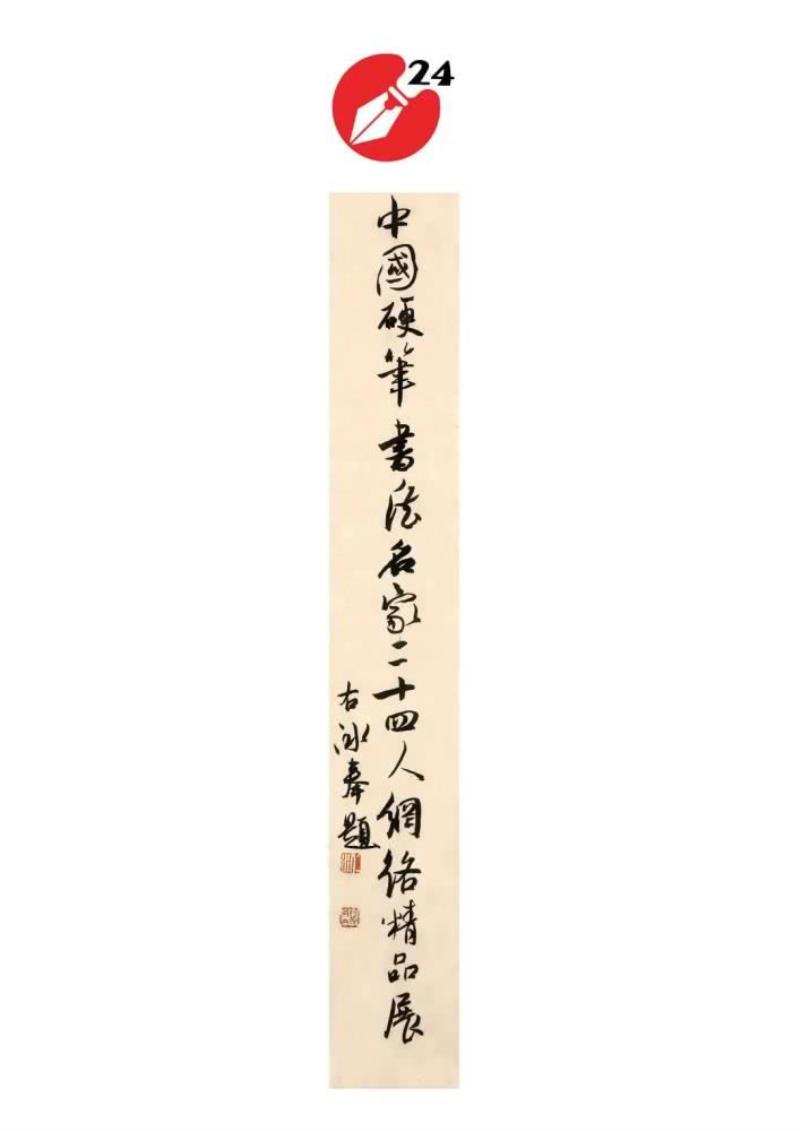 24
中國硬筆書法名家二十四人網絡精品展
右泳奉題